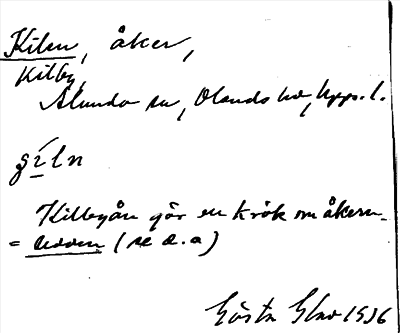 Kilen, åker,
Kilby,
Alunda sn, Olands hd, Upps. l.
Kilbyån gör en krök om åkern
= udden (se d. o)
Gösta 1936